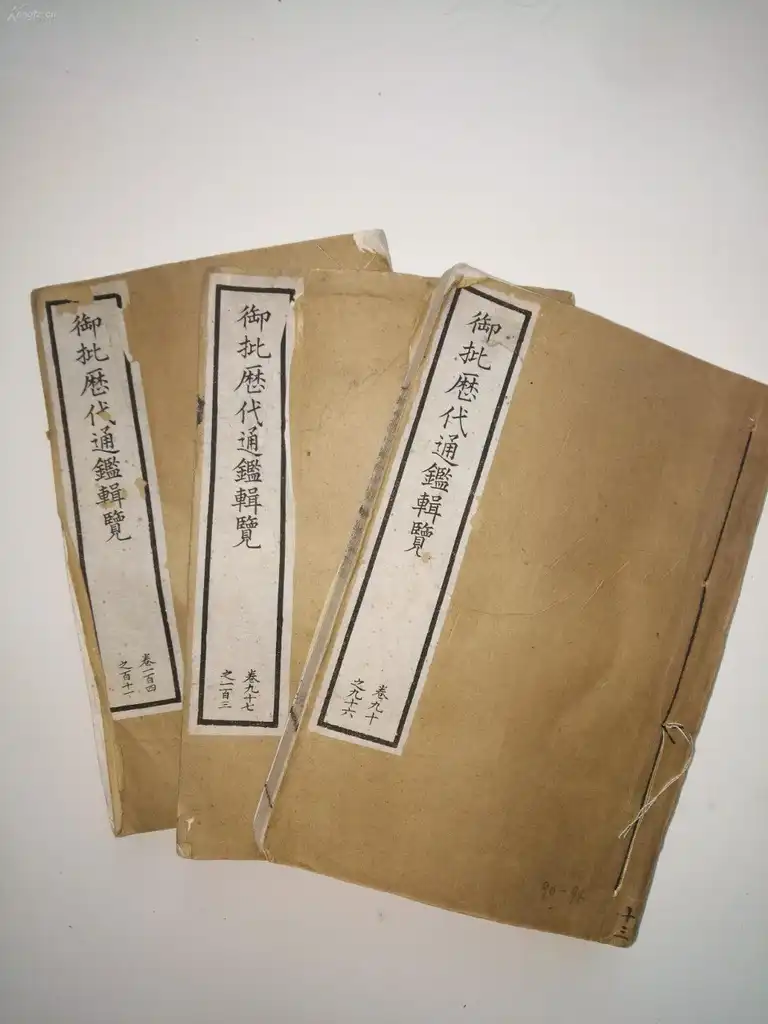 御批歷代通鑑輯覽
卷九十
之九十六
90-96
十三
御批歷代通鑑輯覽
卷九十七
之一百三
御批歷代通鑑輯覽
卷一百四
之百十一